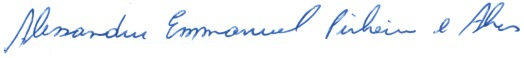 Alessandro Emmanuel Pinheiro e Alves